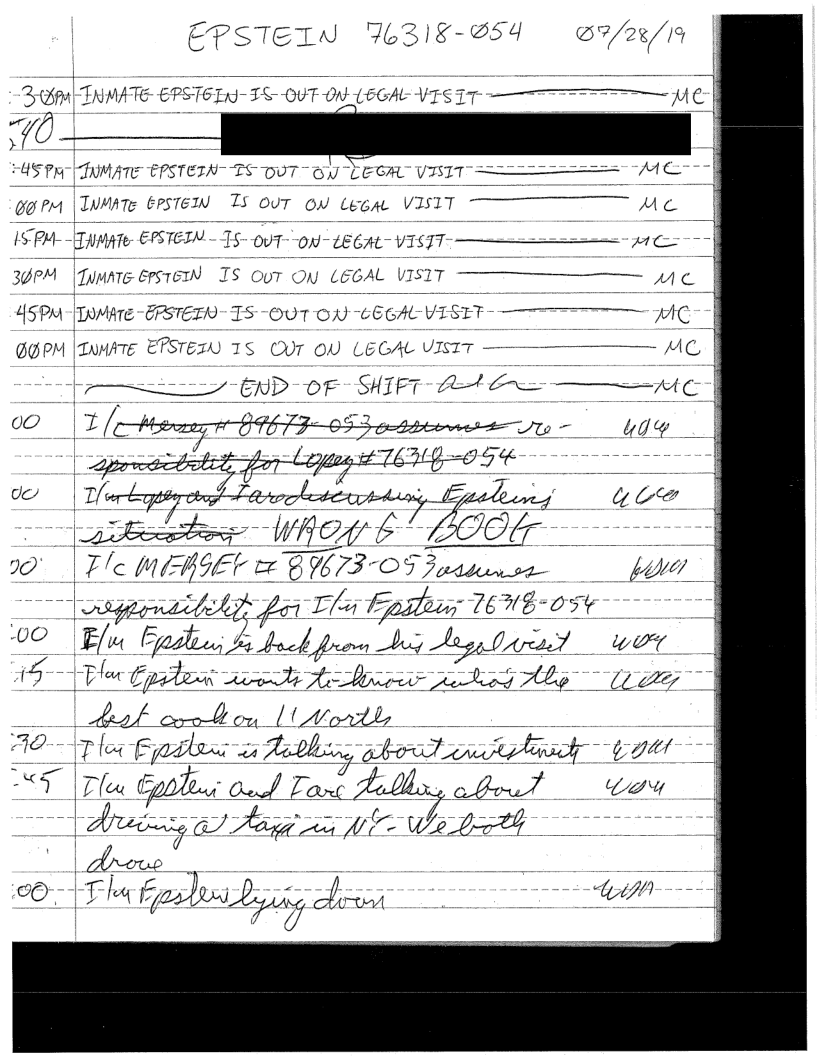 EPSTEIN 76318-054 07/28/19
:30PM INMATE EPSTEIN IS OUT ON LEGAL VISIT MC
:40
:45PM INMATE EPSTEIN IS OUT ON LEGAL VISIT MC
:00PM INMATE EPSTEIN IS OUT ON LEGAL VISIT MC
15PM INMATE EPSTEIN IS OUT ON LEGAL VISIT MC
30PM INMATE EPSTEIN IS OUT ON LEGAL VISIT MC
45PM INMATE EPSTEIN IS OUT ON LEGAL VISIT MC
00PM INMATE EPSTEIN IS OUT ON LEGAL VISIT MC
END OF SHIFT MC
00 I/c Mersey # 89673-053 assumes re-
sponsibility for Lopez # 76318-054
00 I/m Lopez and I are discussing Epstein's
situation WRONG BOOK
00 I/c MERSEY # 89673-053 assumes
responsibility for I/m Epstein 76318-054
:00 I/m Epstein is back from his legal visit
:15 I/m Epstein wants to know who's the
best cook on 11 North
:30 I/m Epstein is talking about investments
:45 I/m Epstein and I are talking about
driving a taxi in NY - We both
drove
:00 I/m Epstein lying down